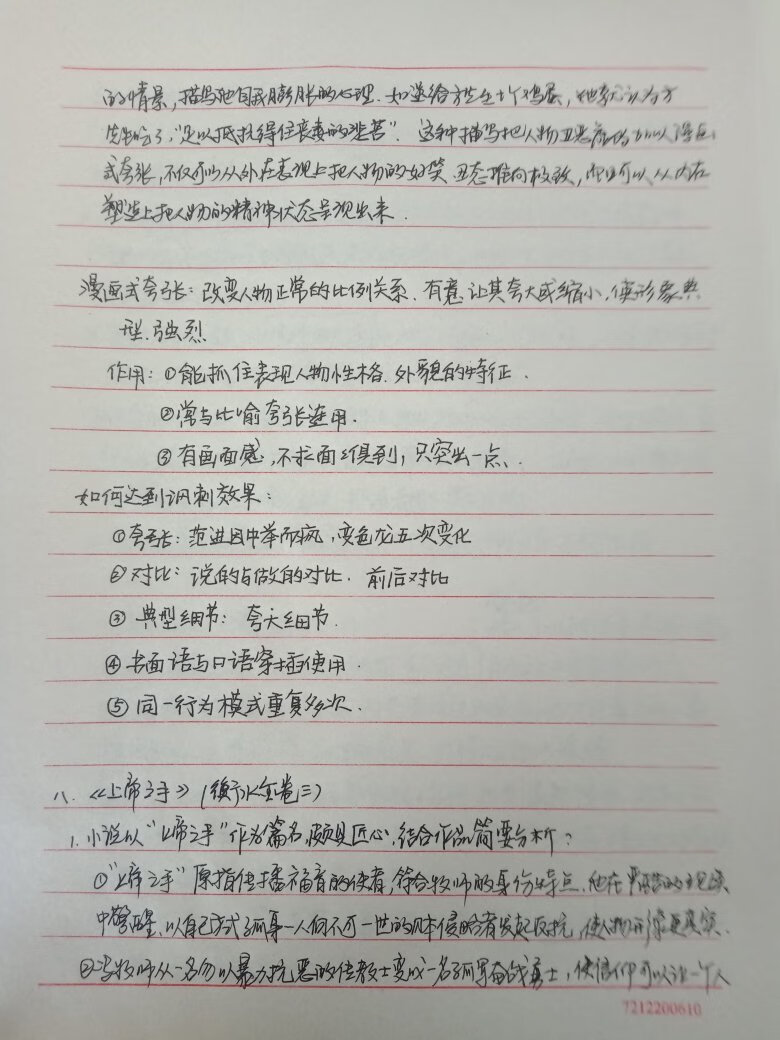 的情景，描写他自我膨胀的心理．如送给方先生个鸡蛋，他就认为方
先生吃了，“足以抵抗得住丧妻的悲苦”．这种描写把人物丑恶加以漫画
式夸张，不仅可以从外在表现上把人物的好笑、丑态推向极致，而且可以从内在
塑造上把人物的精神状态呈现出来．
漫画式夸张：改变人物正常的比例关系．有意让其夸大或缩小，使形象典
型．强烈
作用：①能抓住表现人物性格．外貌的特征．
②常与比喻夸张连用．
③有画面感，不求面面俱到，只突出一点．
如何达到讽刺效果：
①夸张：范进因中举而疯，变色龙五次变化
②对比：说的与做的对比．前后对比
③典型细节：夸大细节．
④书面语与口语穿插使用．
⑤同一行为模式重复多次．
八．《上帝之手》（衡水金卷三）
1．小说以“上帝之手”作为篇名，颇具匠心，结合作品简要分析？
①“上帝之手”原指传播福音的使者，符合牧师的身份特点．他在严酷的现实
中警醒．以自己方式孤身一人向不可一世的日本侵略者发起反抗，使人物形象更真实．
②牧师从一名勿以暴力抗恶的传教士变成一名孤军奋战勇士，使信仰可以让一个人
7212200610